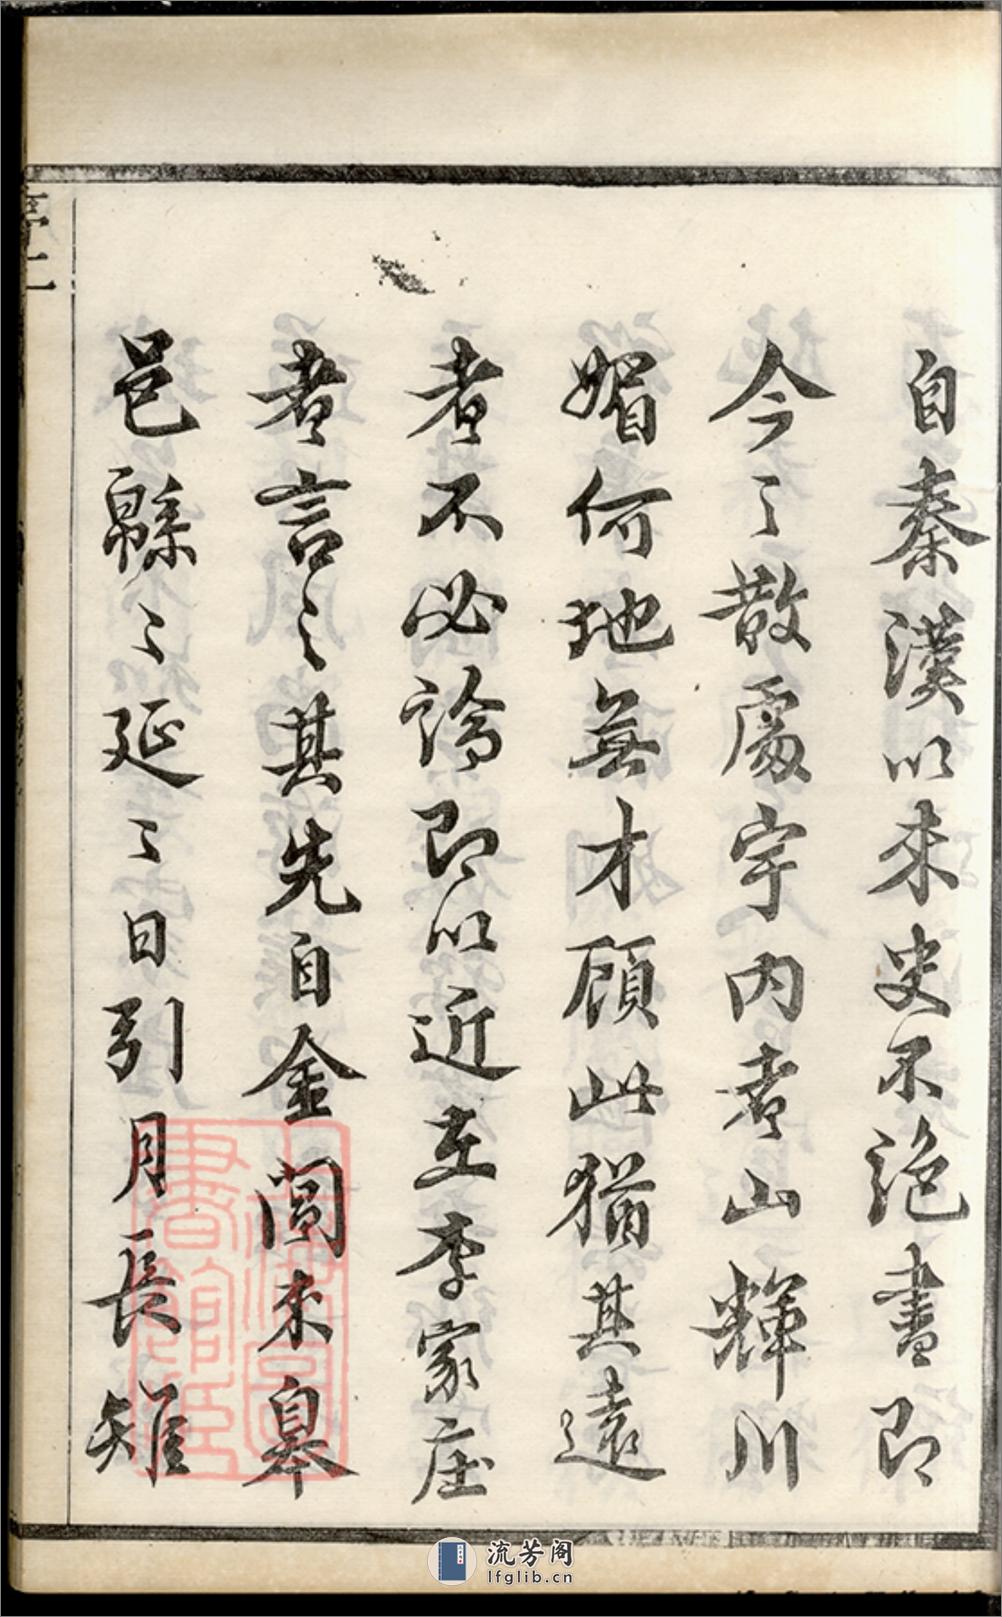 自秦漢以來史不絶書即
今之散處宇内者山輝川
媚何地無才顧此猶其遠
者不必論即以近在李家庄
者言之其先自金閶來皋
邑緜〻延〻日引月長雉
流芳阁
lfglib.cn